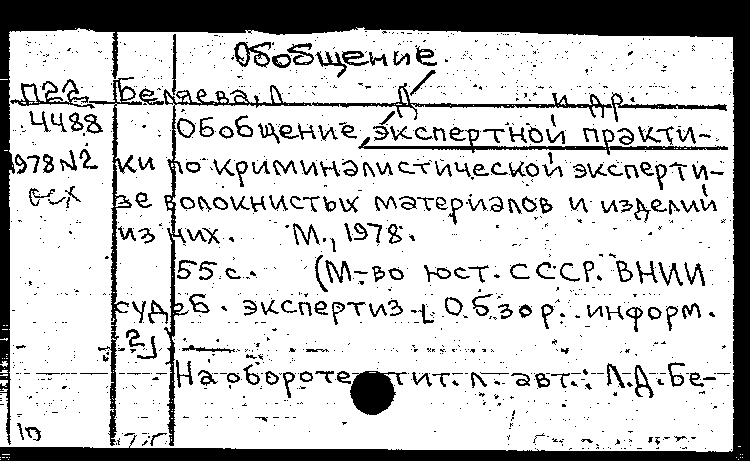 Обобщение
П22 Беляева, Л Д и др.
4488 Обобщение экспертной практи-
1978 N2 ки по криминалистической эксперти-
зе волокнистых материалов и изделий
из них. М., 1978.
55 с. (М-во юст. СССР. ВНИИ
судеб. экспертиз. Обзор. информ.
2)
На обороте тит. л. авт.: Л.Д.Бе-
10